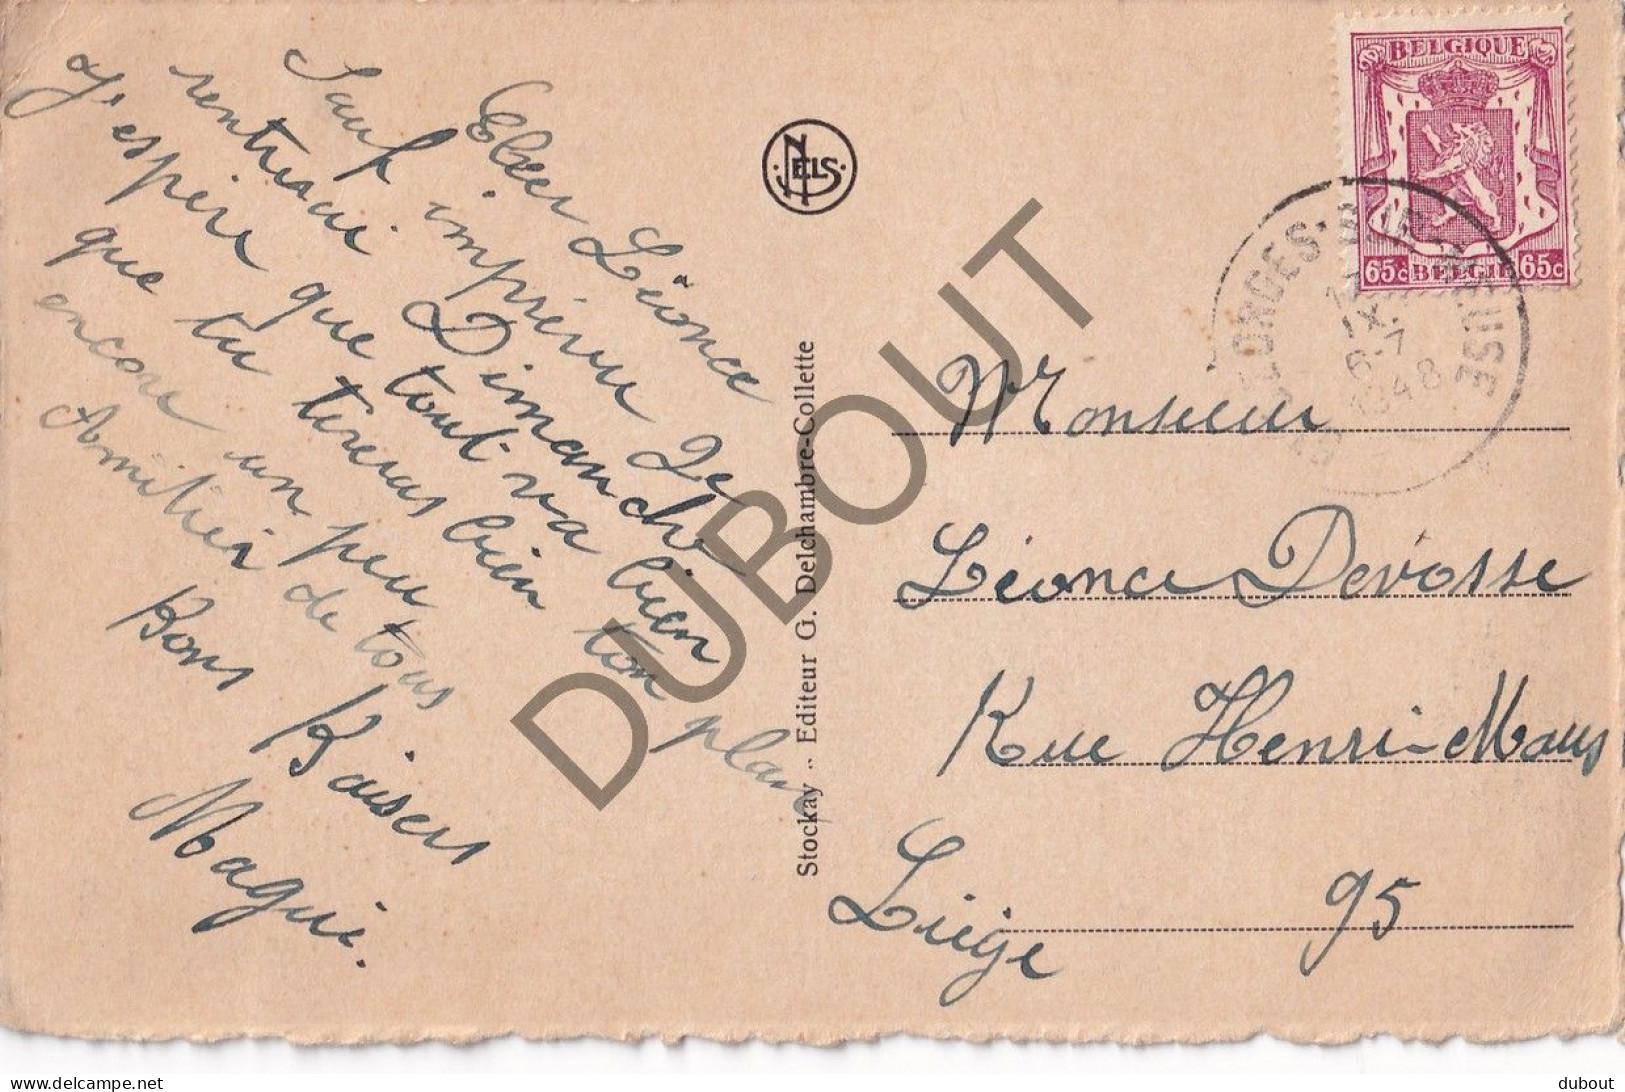 Cher Léonce
Sauf imprévu Je
rentrerai Dimanche
J'espère que tout va bien
que tu tiens bien ton
encore un peu
Amitiés de tous
Bons Baisers
Magui.
NELS
Stockay .. Editeur G. Delchambre-Collette
BELGIQUE
65c BELGIE 65c
GEORGES
MEUSE
IX
6-7
1948
Monsieur
Léonce Devosse
Rue Henri-Maus
95
Liège
DUBOUT
delcampe.net
dubout